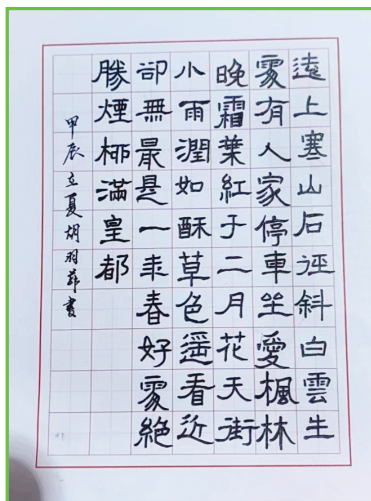 遠上寒山石徑斜白雲生
處有人家停車坐愛楓林
晚霜葉紅于二月花天街
小雨潤如酥草色遙看近
卻無最是一年春好處絕
勝煙柳滿皇都
甲辰立夏胡羽書